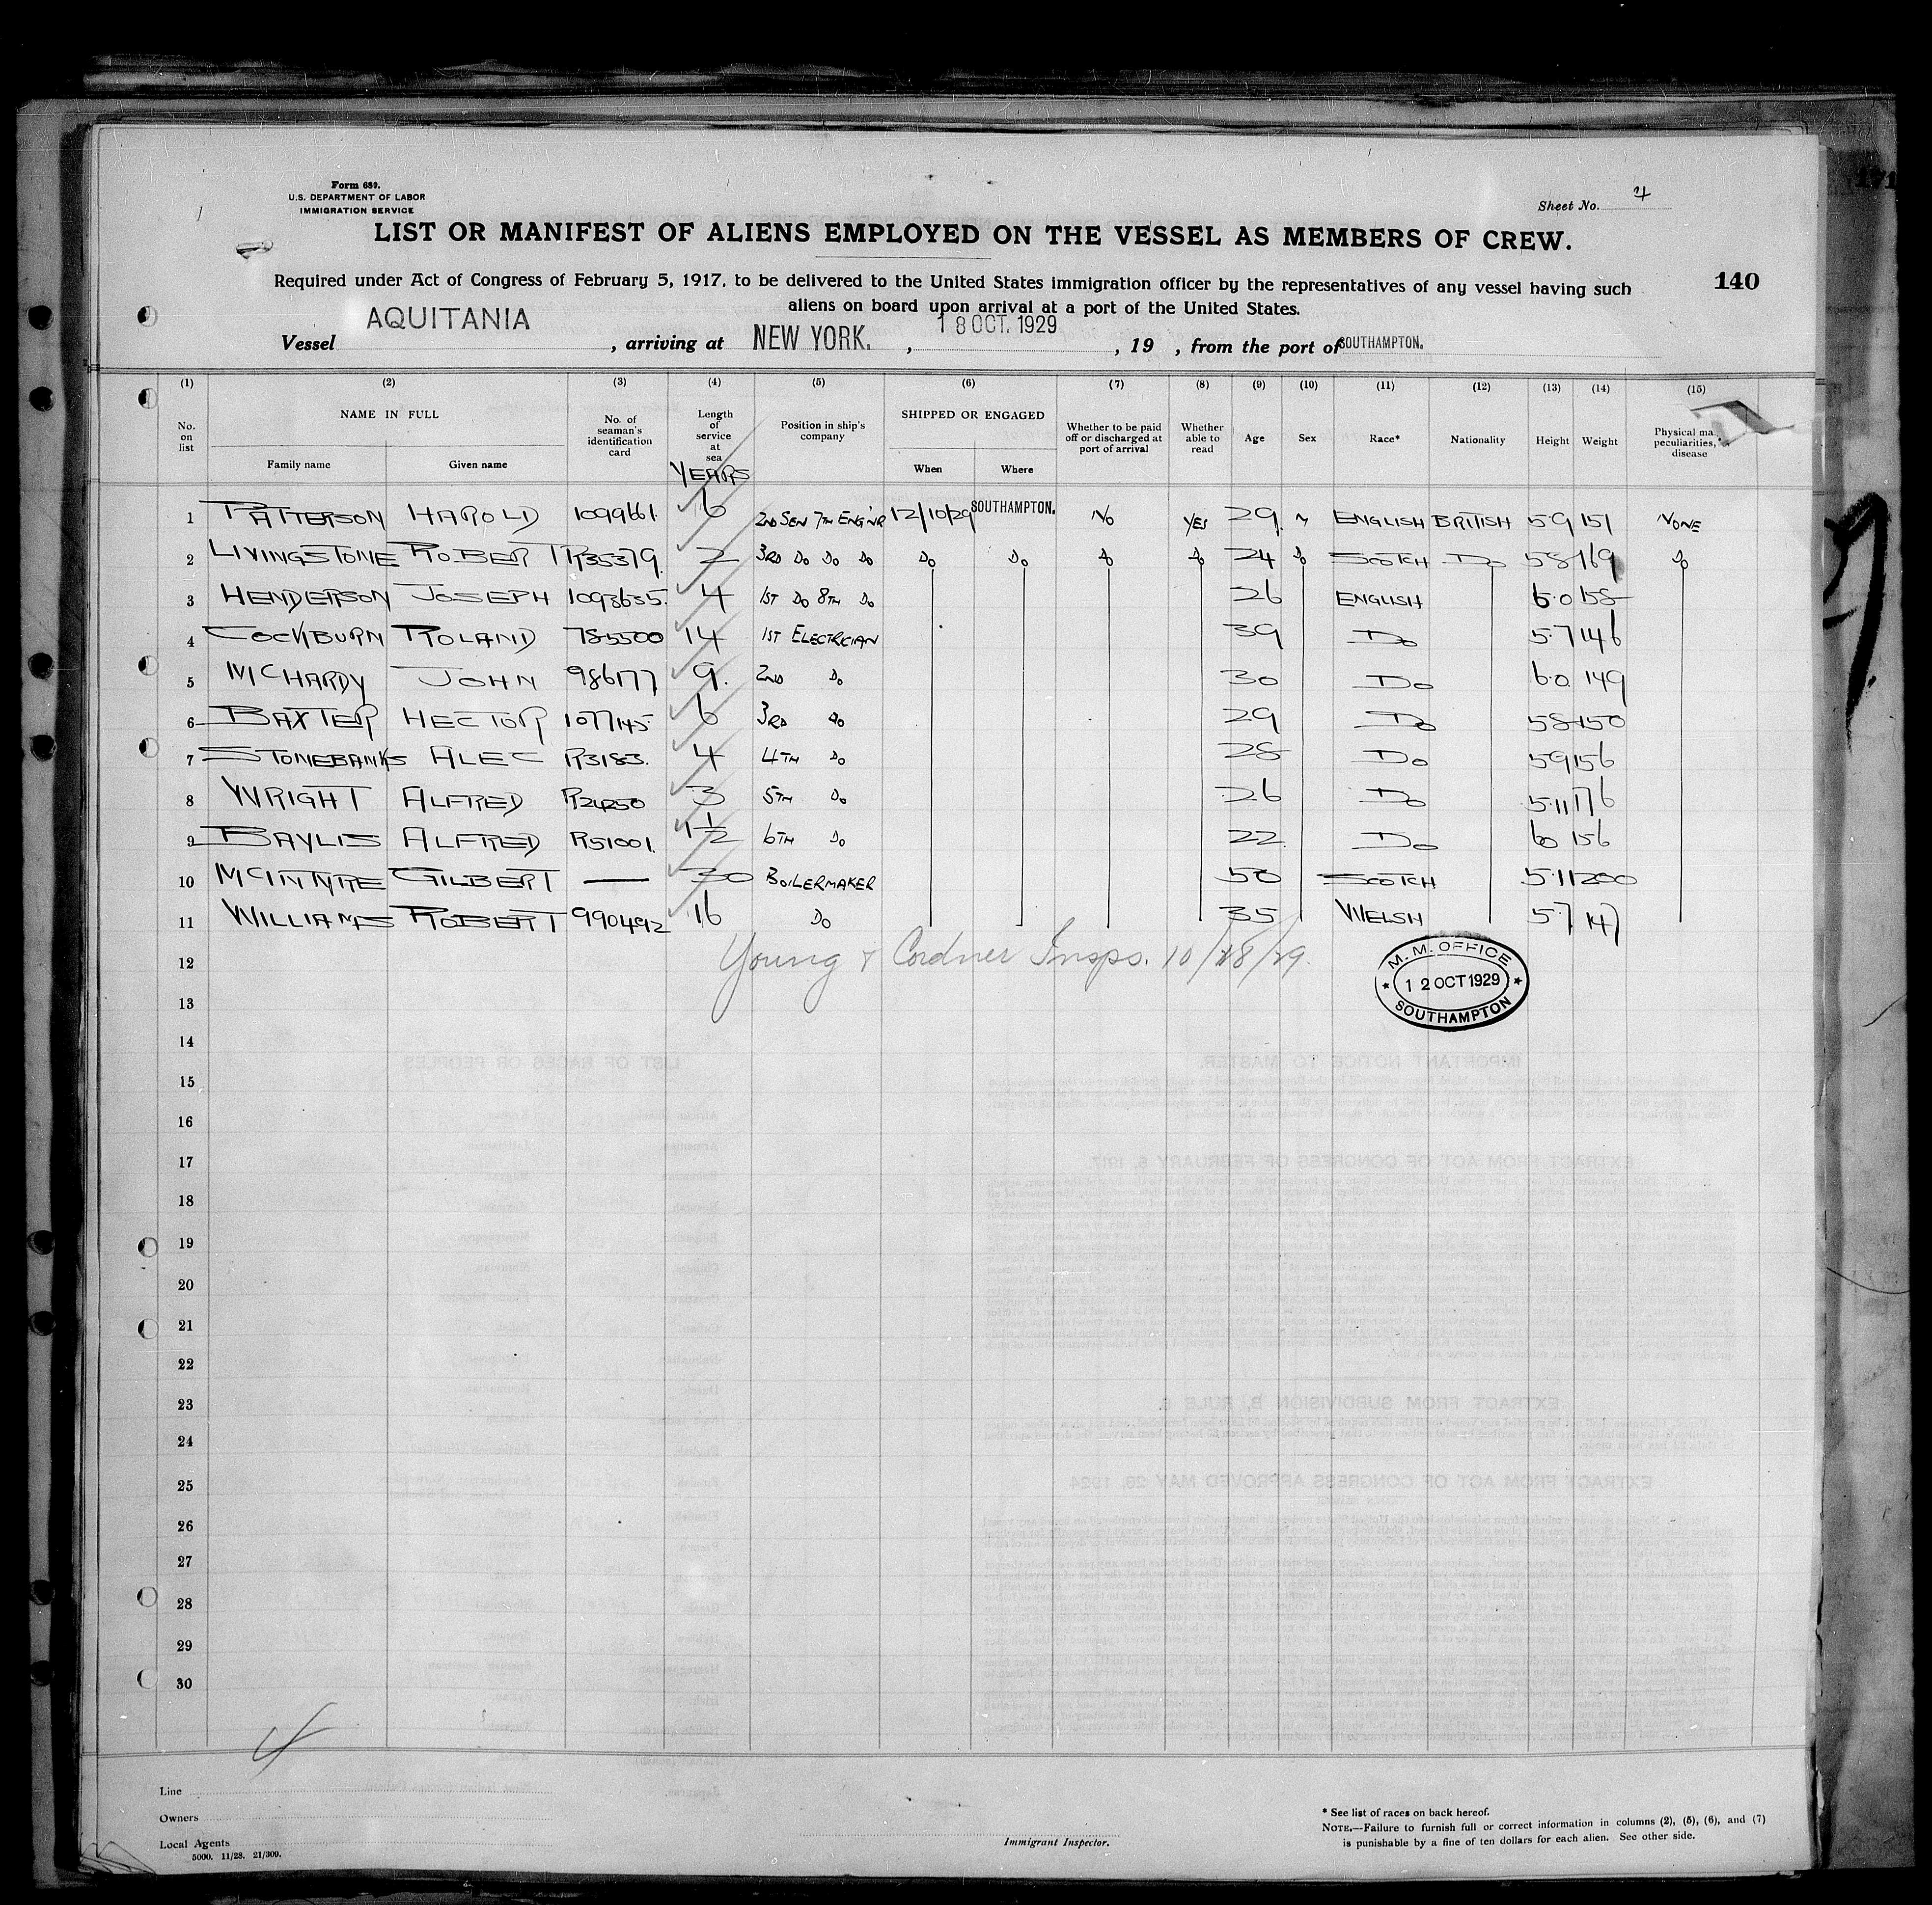 Form 689.
U.S. DEPARTMENT OF LABOR
IMMIGRATION SERVICE
Sheet No. 4
LIST OR MANIFEST OF ALIENS EMPLOYED ON THE VESSEL AS MEMBERS OF CREW.
Required under Act of Congress of February 5, 1917, to be delivered to the United States immigration officer by the representatives of any vessel having such
140
aliens on board upon arrival at a port of the United States.
Vessel AQUITANIA, arriving at NEW YORK., 18 OCT. 1929, 19 , from the port of SOUTHAMPTON.
(1) (2) (3) (4) (5) (6) (7) (8) (9) (10) (11) (12) (13) (14) (15)
No. on list NAME IN FULL Family name Given name No. of seaman's identification card Length of service at sea YEARS Position in ship's company SHIPPED OR ENGAGED When Where Whether to be paid off or discharged at port of arrival Whether able to read Age Sex Race* Nationality Height Weight Physical ma peculiarities, disease
1 PATTERSON HAROLD 1099661. 6 2ND SEN 7TH ENG'NR 12/10/29 SOUTHAMPTON. NO YES 29 M ENGLISH BRITISH 5 9 151 NONE
2 LIVINGSTONE ROBERT R35379. 2 3RD DO DO DO DO DO DO DO 24 DO SCOTCH DO 5 8 169 DO
3 HENDERSON JOSEPH 1098635. 4 1ST DO 8TH DO 26 ENGLISH 6.0 158
4 COCKBURN ROLAND 785500 14 1ST ELECTRICIAN 39 DO 5.7 146
5 MCHARDY JOHN 986177 9. 2ND DO 30 DO 6.0 149
6 BAXTER HECTOR 1077145 6 3RD DO 29 DO 5 8 150
7 STONEBANKS ALEC R3183. 4 4TH DO 28 DO 5 9 156
8 WRIGHT ALFRED R24250 3 5TH DO 26 DO 5.11 176
9 BAYLIS ALFRED R51001. 1½ 6TH DO 22 DO 6 0 156
10 MCINTYRE GILBERT — 30 BOILERMAKER 50 SCOTCH 5.11 200
11 WILLIAMS ROBERT 990492 16 DO 35 WELSH 5.7 147
12 Young & Cordner Insps. 10/18/29.
M. M. OFFICE
12 OCT 1929
SOUTHAMPTON
13
14
15
16
17
18
19
20
21
22
23
24
25
26
27
28
29
30
4
Line
Owners
Local Agents
5000. 11/28. 21/309.
Immigrant Inspector.
* See list of races on back hereof.
NOTE.—Failure to furnish full or correct information in columns (2), (5), (6), and (7)
is punishable by a fine of ten dollars for each alien. See other side.